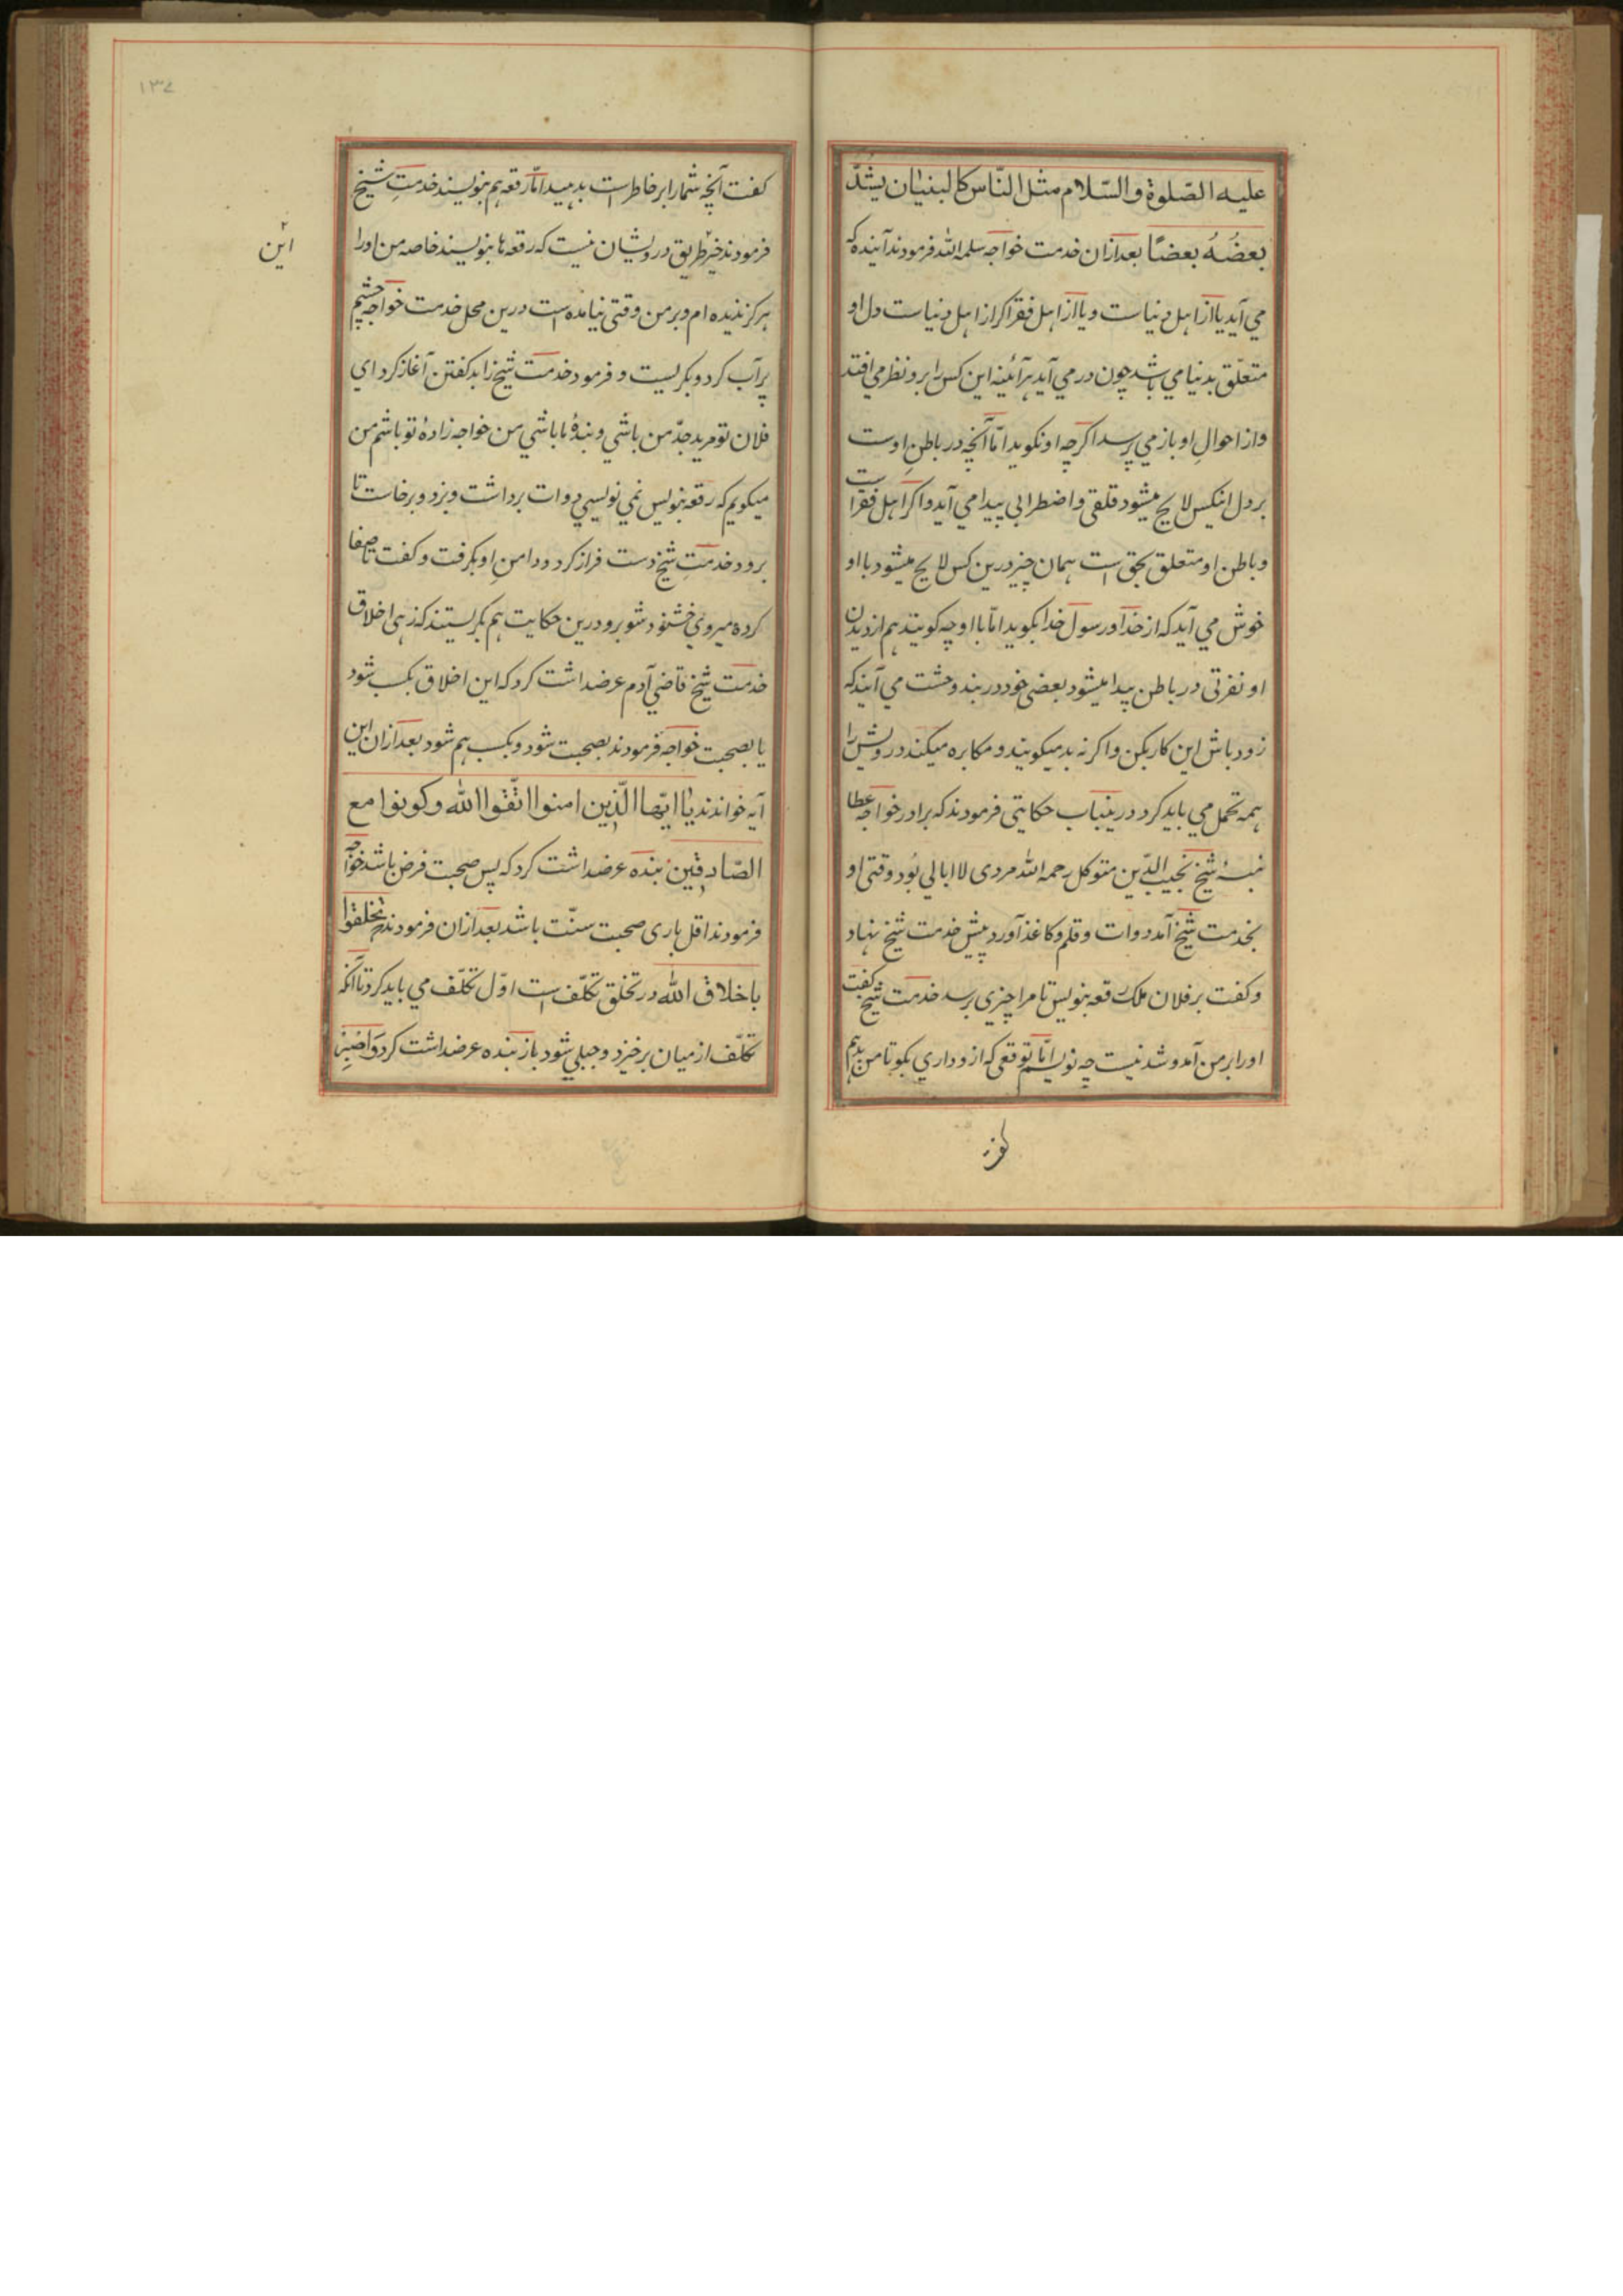 علیه الصّلوة والسّلام مثل النّاس كالبنیان یشدّ
بعضُهُ بعضًا بعد ازان خدمت خواجه سلمه الله فرمودند آینده که
می آید یا از اهل دنیاست و یا از اهل فقر اکر از اهل دنیاست دل او
متعلّق بدنیا می باشد چون در می آید هر آئینه این کس را برو نظر می افتد
واز احوالِ او باز می پرسد اکرچه او نکوید امّا آنچه در باطنِ اوست
بر دل اینکس لایح میشود قلقی واضطرابی پیدا می آید واکر اهل فقر است
وباطن او متعلق بحق است همان چیز درین کس لایح میشود با او
خوش می آید که از خدا ورسول خدا بکوید امّا با او چه کویند هم از دیدن
او نفرتی در باطن پیدا میشود بعضی خود در بند وحشت می آیند که
زود باش این کار بکن واکر نه بد میکویند و مکابره میکنند درویش را
همه تحمل می باید کرد درینباب حکایتی فرمودند که برادر خواجه عطا
نبسۀ شیخ نجیب الدّین متوکل رحمه الله مردی لاابالی بُود وقتی او
بخدمت شیخ آمد دوات وقلم وکاغذ آورد پیش خدمت شیخ نهاد
وکفت بر فلان ملک رقعه بنویس تا مرا چیزی برسد خدمت شیخ کفت
اورا بر من آمد وشد نیست چه نویسم امّا توقعی که ازو داری بکو تا من بدهم
کفت
۱۳۷
کفت آنچه شمارا بر خاطر است بدهید امّا رقعه هم بنویسند خدمتِ شیخ
فرمودند خیر طریق درویشان نیست که رقعه ها بنویسند خاصه من اورا
هرکز ندیده ام وبر من وقتی نیامده است درین محل خدمت خواجه چشم
پر آب کرد وبکریست و فرمود خدمت شیخ زاید کفتن آغاز کرد ای
فلان تو مرید جدّ من باشی وبندۀ ما باشی من خواجه زادۀ تو باشم من
میکویم که رقعه بنویس نمی نویسی دوات برداشت وبزد وبرخاست تا
برود خدمتِ شیخ دست فراز کرد ودامنِ او بکرفت وکفت ناصفا
کرده میروی خشنود شو برو درین حکایت هم بکریستند که زهی اخلاق
خدمت شیخ قاضی آدم عرضداشت کرد که این اخلاق بکسب شود
یا بصحبت خواجه فرمودند بصحبت شود وبکسب هم شود بعد ازان این
آیه خواندند یا ایّها الّذین امنوا اتّقوا الله وکونوا مع
الصّادقین بنده عرضداشت کرد که پس صحبت فرض باشد خواجه
فرمودند اقل باری صحبت سنّت باشد بعد ازان فرمودند تخلقوا
باخلاق الله در تخلق تکلّف است اوّل تکلّف می باید کرد تا آنکه
تکلّف از میان برخیزد وجبلی شود باز بنده عرضداشت کرد وَاصْبِرْ
۲
این